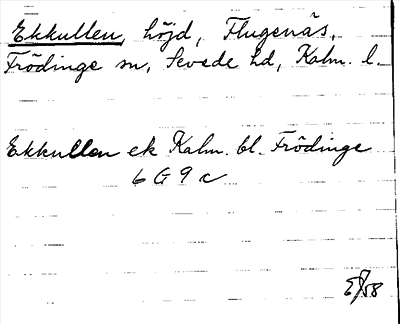 Ekkullen, höjd, Flugenäs,
Frödinge sn, Sevede hd, Kalm. l.
Ekkullen ek Kalm. bl. Frödinge
6 G 9 c